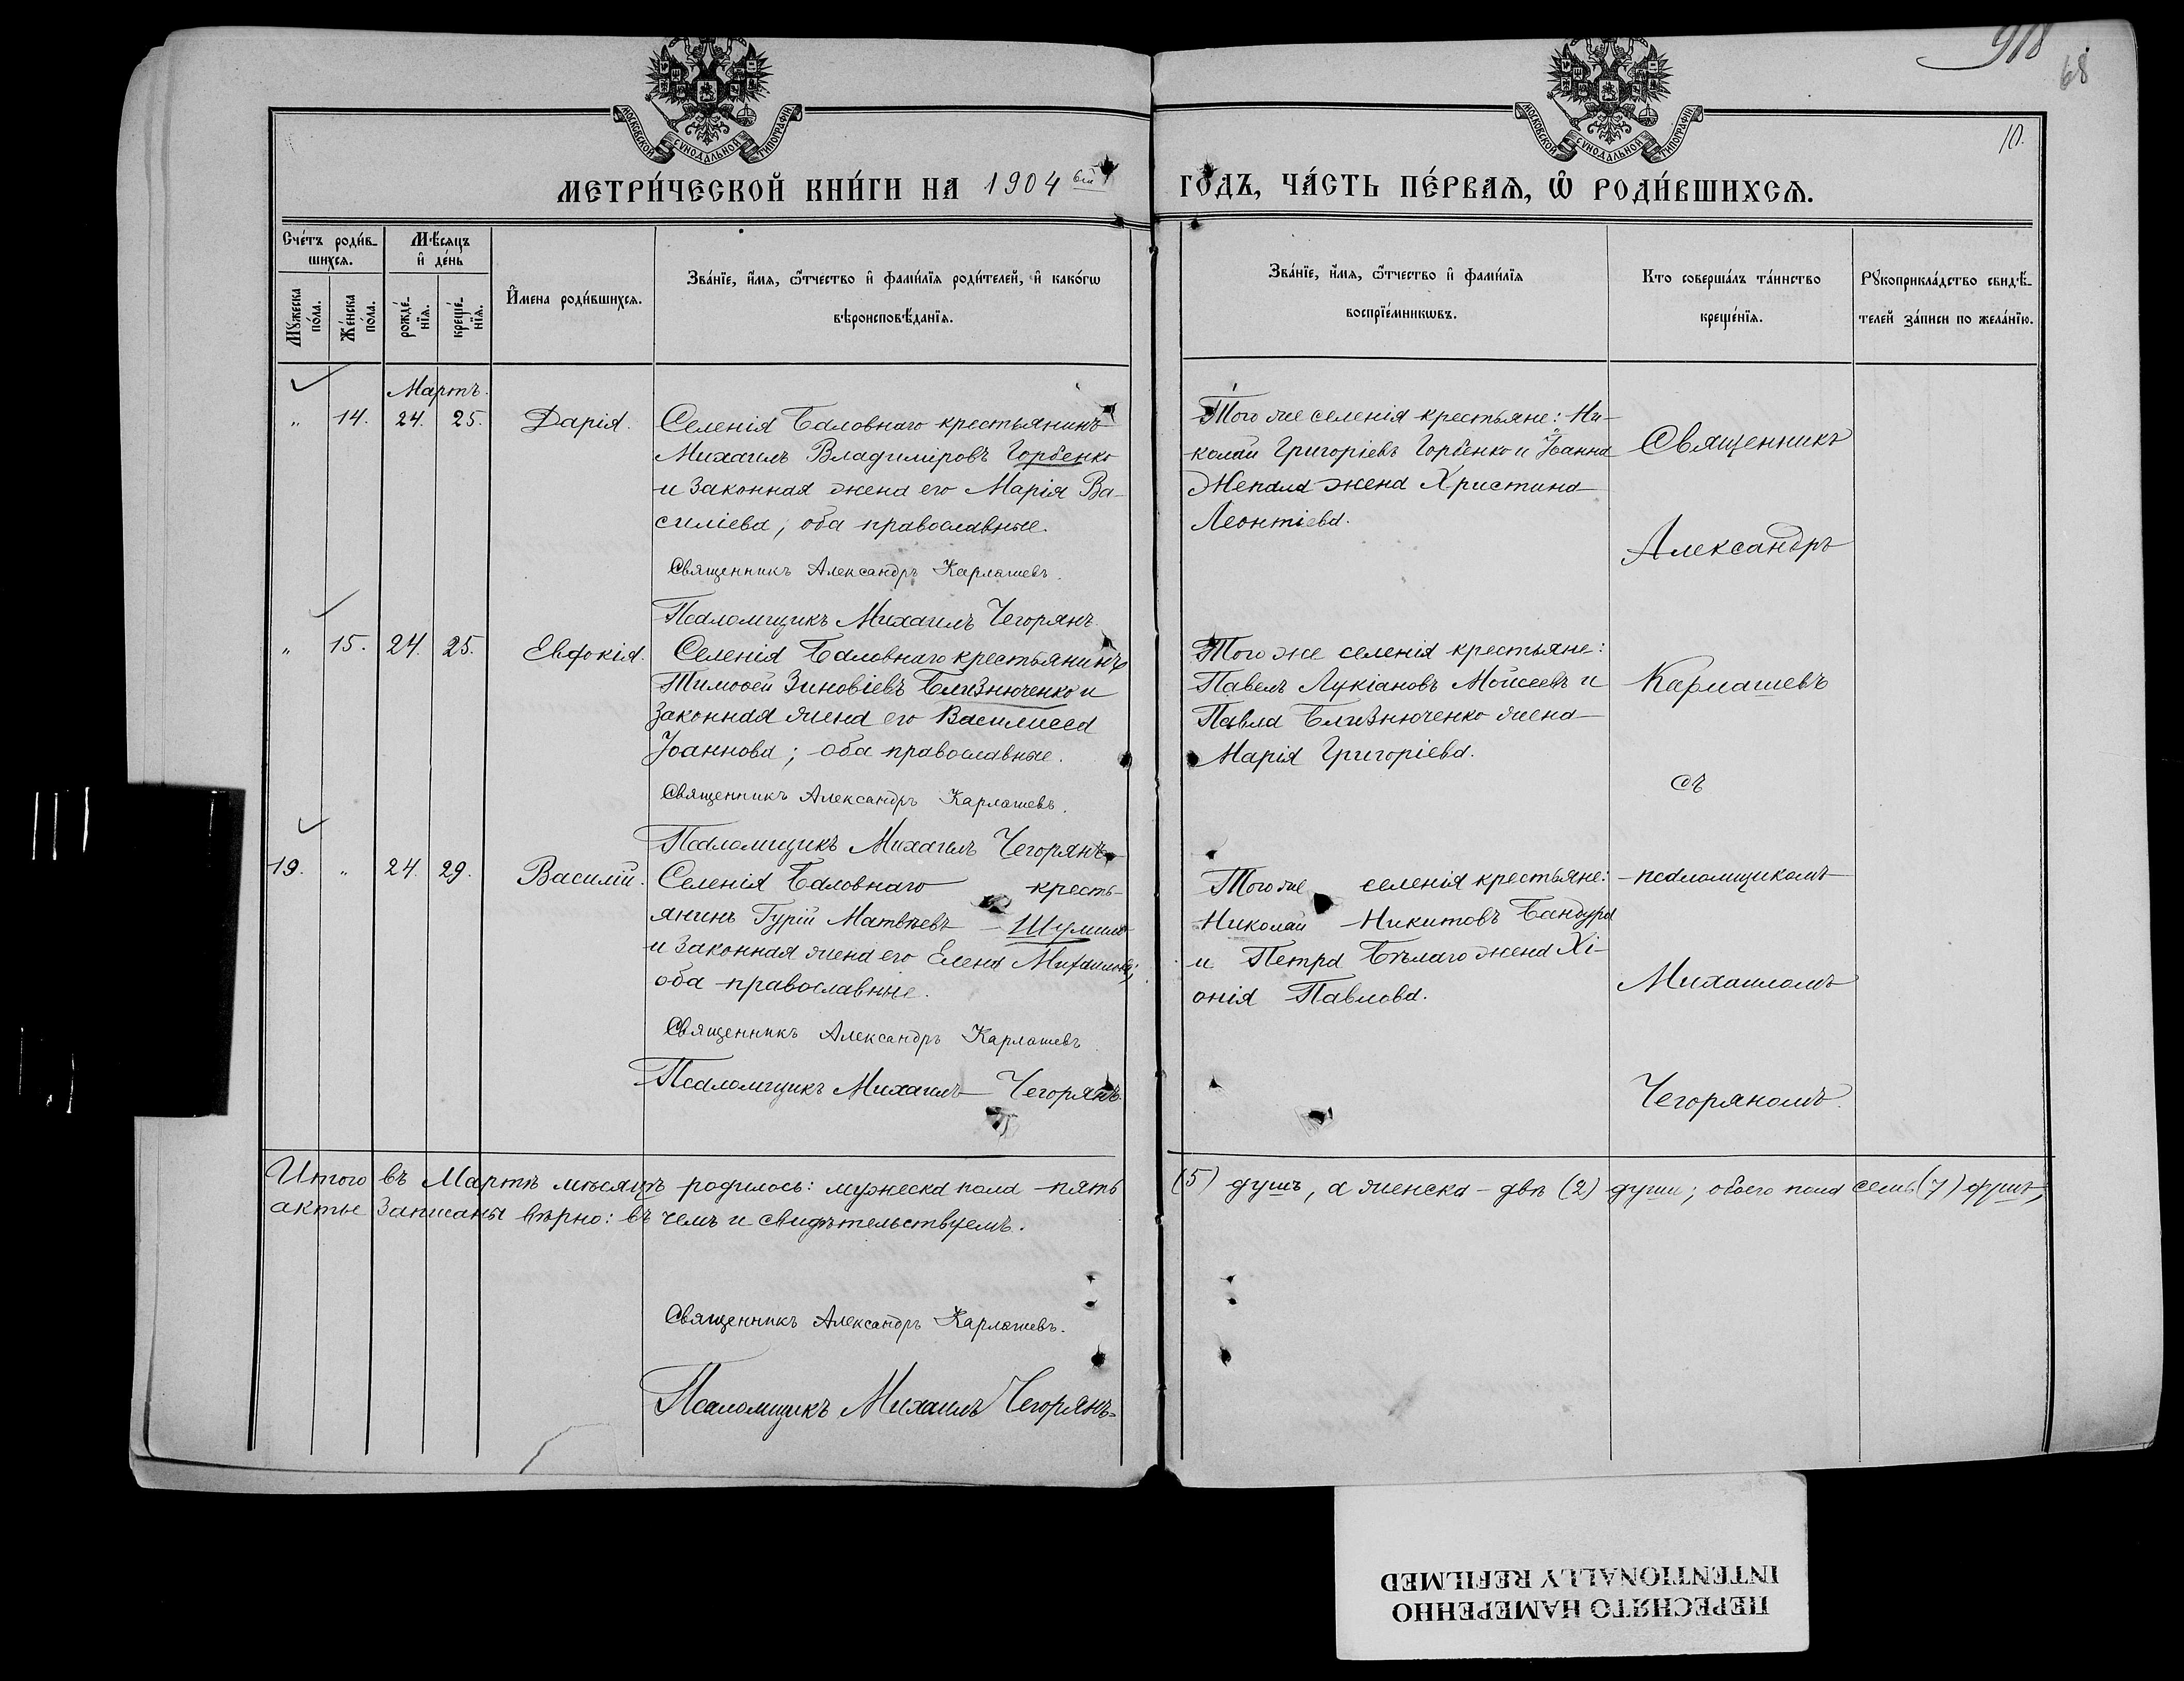 918
68
10.
МОСКОВСКОЙ СѴНОДАЛЬНОЙ ТИПОГРАФІИ
МОСКОВСКОЙ СѴНОДАЛЬНОЙ ТИПОГРАФІИ
МЕТРИ́ЧЕСКОЙ КНИ́ГИ НА 1904 ый
ГО́ДЪ, ЧА́СТЬ ПЕ́РВАѦ, Ѽ РОДИ́ВШИХСѦ.
Сче́тъ роди́в-
шихсѧ.
Мꙋ́жеска
по́ла.
Же́нска
по́ла.
Мѣ́сѧцъ
и҆ де́нь
рожде́-
нїѧ.
креще́-
нїѧ.
И҆мена роди́вшихсѧ.
Зва́нїе, и҆́мѧ, ѻ҆́тчество и҆ фами́лїѧ роди́телей, и҆ како́гѡ
вѣроисповѣ́данїѧ.
Зва́нїе, и҆́мѧ, ѻ҆́тчество и҆ фами́лїѧ
воспрїе́мникѡвъ.
Кто соверша́лъ та́инство
креще́нїѧ.
Рꙋкоприкла́дство свидѣ́-
телей за́писи по жела́нїю.
Мартъ.
„ 14. 24. 25. Дарія.
Селенія Баловнаго крестьянинъ
Михаилъ Владиміровъ Горбенко
и законная жена его Марія Ва-
силіева, оба православные.
Священникъ Александръ Карлашевъ.
Псаломщикъ Михаилъ Чегорянъ.
Того же селенія крестьяне: Ни-
колай Григоріевъ Горбенко и Іоанна
жена Христина
Леонтіева.
„ 15. 24. 25. Евдокія.
Селенія Баловнаго крестьянинъ
Тимоѳей Зиновіевъ Близнюченко и
законная жена его Василисса
Іоаннова; оба православные.
Священникъ Александръ Карлашевъ.
Псаломщикъ Михаилъ Чегорянъ
Того же селенія крестьяне:
Павелъ Лукіановъ Мойсеевъ и
Павла Близнюченко жена
Марія Григоріева.
19. „ 24. 29. Василій.
Селенія Баловнаго кресть-
янинъ Гурій Матвѣевъ
и законная жена его Елена Михаилова;
оба православные.
Священникъ Александръ Карлашевъ
Псаломщикъ Михаилъ Чегорянъ.
Того же селенія крестьяне:
Николай Никитовъ Бандура
и Петра Бѣлаго жена Хі-
онія Павлова.
Священникъ
Александръ
Карлашевъ
съ
псаломщикомъ
Михаиломъ
Чегоряномъ.
Итого въ Мартѣ мѣсяцѣ родилось: мужеска пола пять (5) душъ, а женска – двѣ (2) души; обоего пола семь (7) душъ,
акты записаны вѣрно: въ чемъ и свидѣтельствуемъ.
Священникъ Александръ Карлашевъ.
Псаломщикъ Михаилъ Чегорянъ.
ПЕРЕСНЯТО НАМЕРЕННО
INTENTIONALLY REFILMED